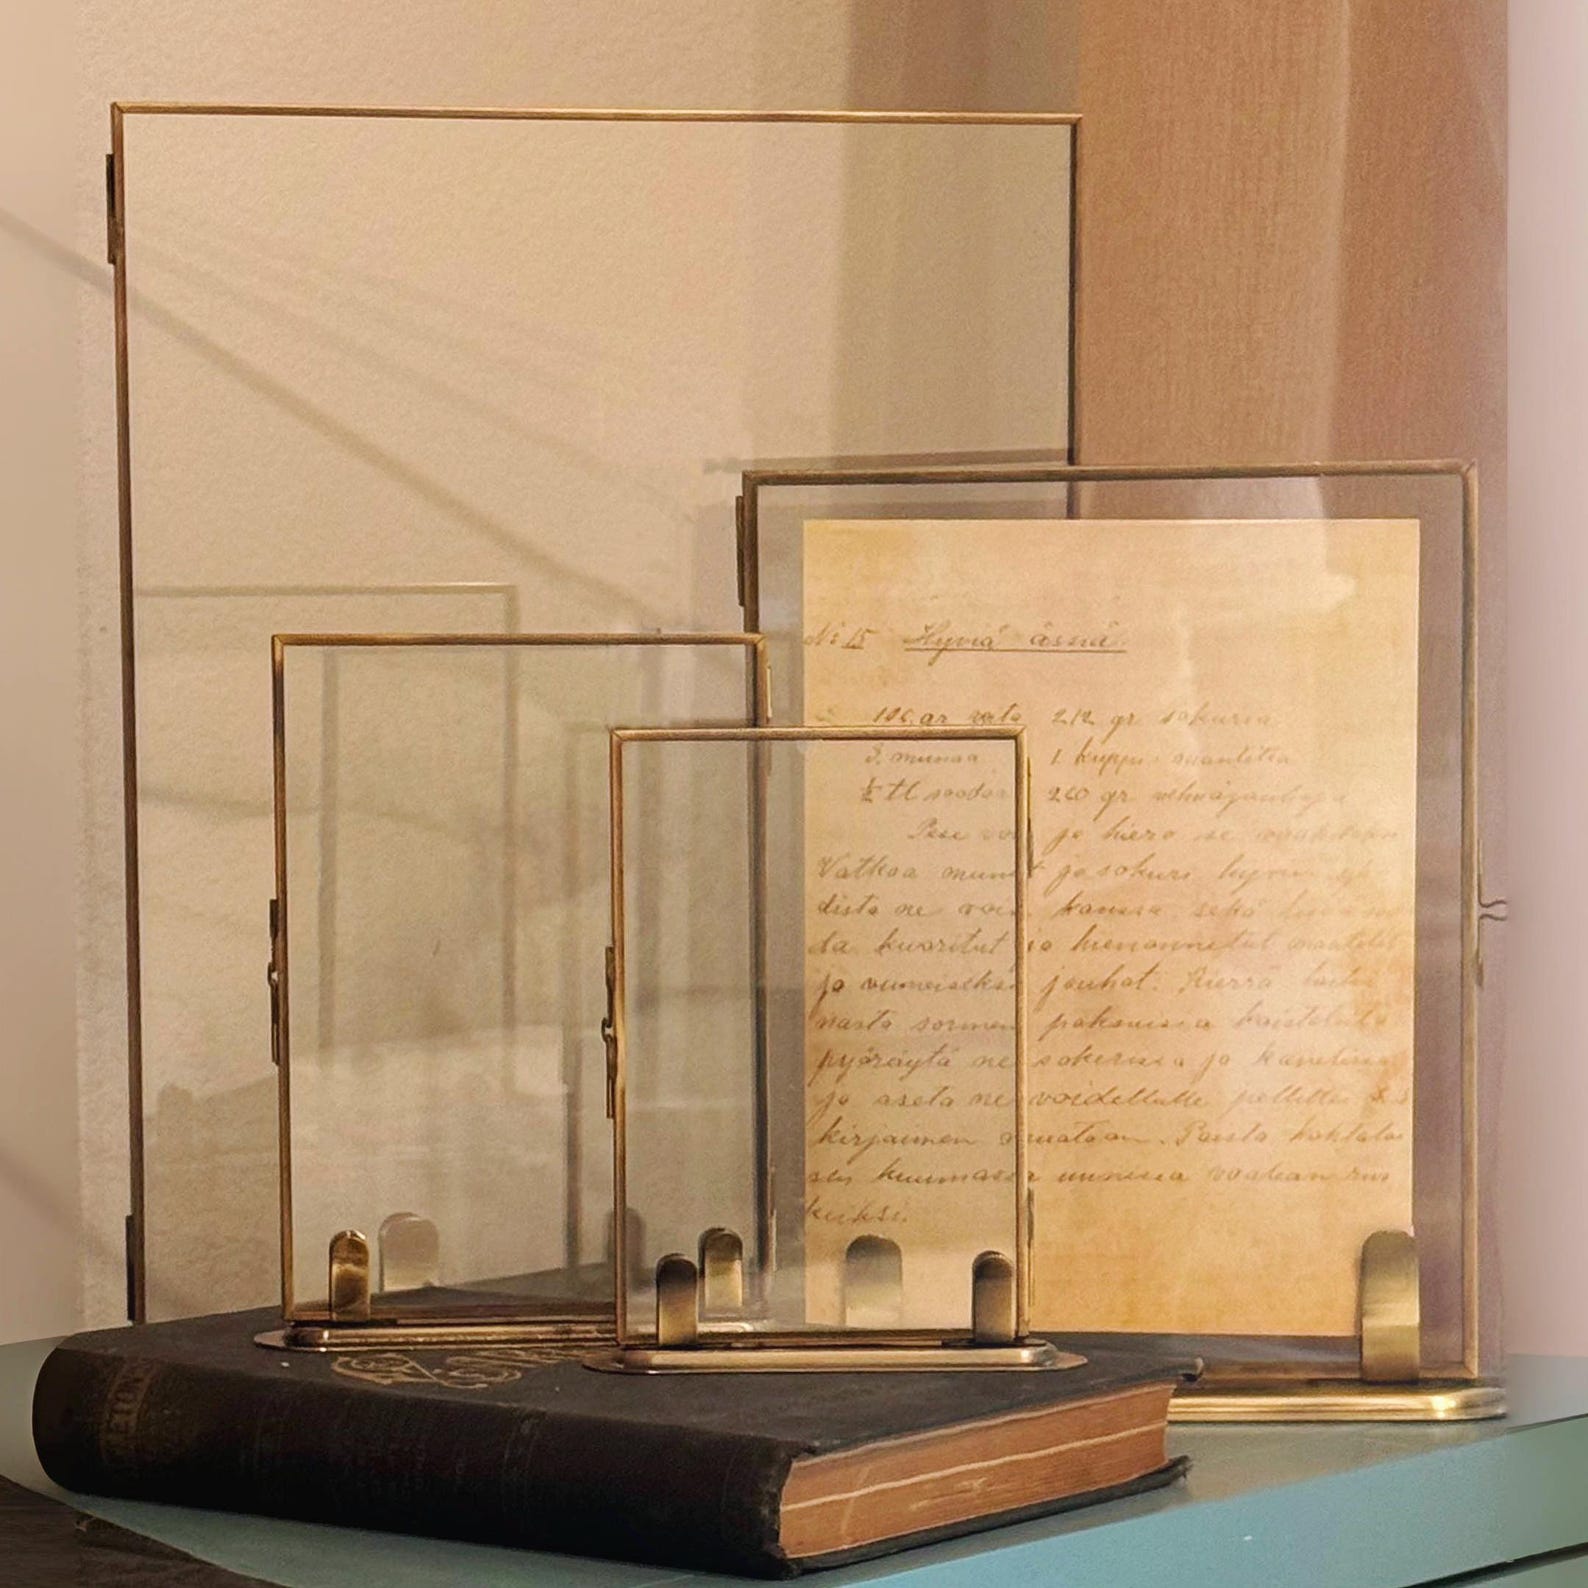 № 15 Hyviä ässiä
106. gr voita 212 gr sokuria
3. munaa 1. kuppi mantelia
½ tl soodaa 260 gr vehnäjauhoja
Pese voi ja hiero se vaahtoon
Vatkaa munat ja sokuri hyvin
dista ne voin kanssa sekä
ta kuoritut ja hienonnetut mantelit
ja viimeiseksi jauhot. Kierrä
nasta sormen paksuisia
pyöräytä ne sokerissa ja kanelissa
ja aseta ne voidellulle pellille S
kirjaimen muotoon. Paista
sen kuumassa uunissa vaalean rus
keiksi.